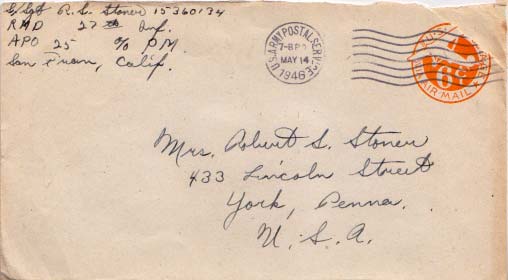 S/Sgt R. S. Stoner 15360134
RMD 27th Inf.
APO 25 % P.M.
San Fran, Calif.
U.S. ARMY POSTAL SERVICE
7-8PM
MAY 14
1946
6¢
AIR MAIL
Mrs. Robert S. Stoner
433 Lincoln Street
York, Penna.
U. S. A.